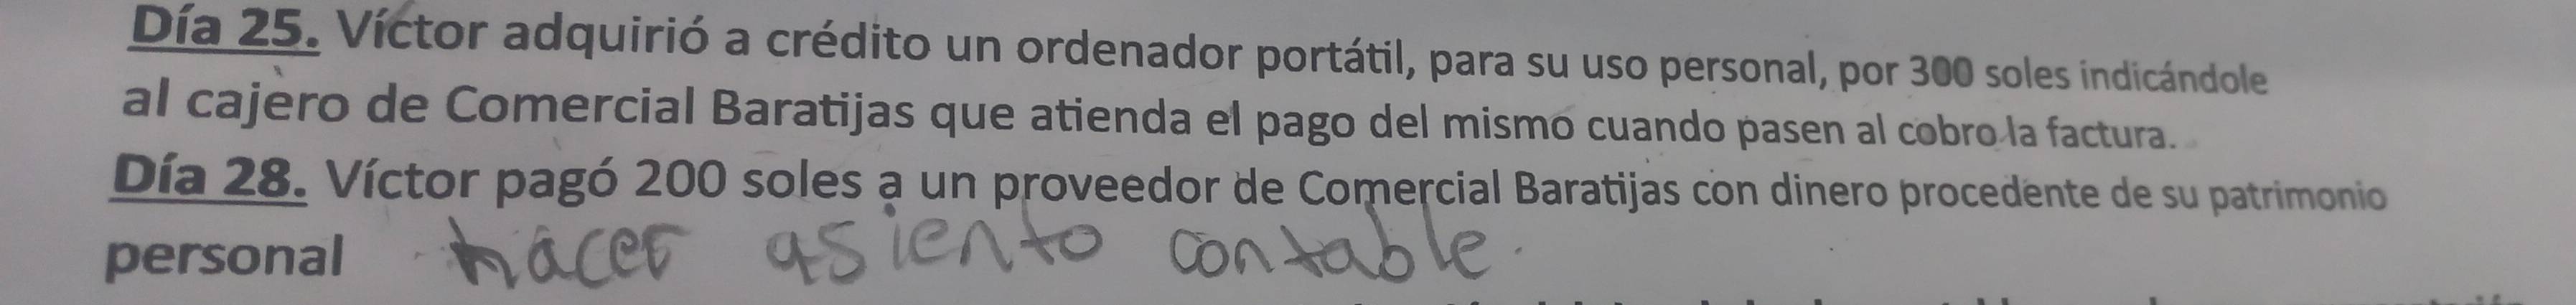 Día 25. Víctor adquirió a crédito un ordenador portátil, para su uso personal, por 300 soles indicándole
al cajero de Comercial Baratijas que atienda el pago del mismo cuando pasen al cobro la factura.
Día 28. Víctor pagó 200 soles a un proveedor de Comercial Baratijas con dinero procedente de su patrimonio
personal hacer asiento contable.